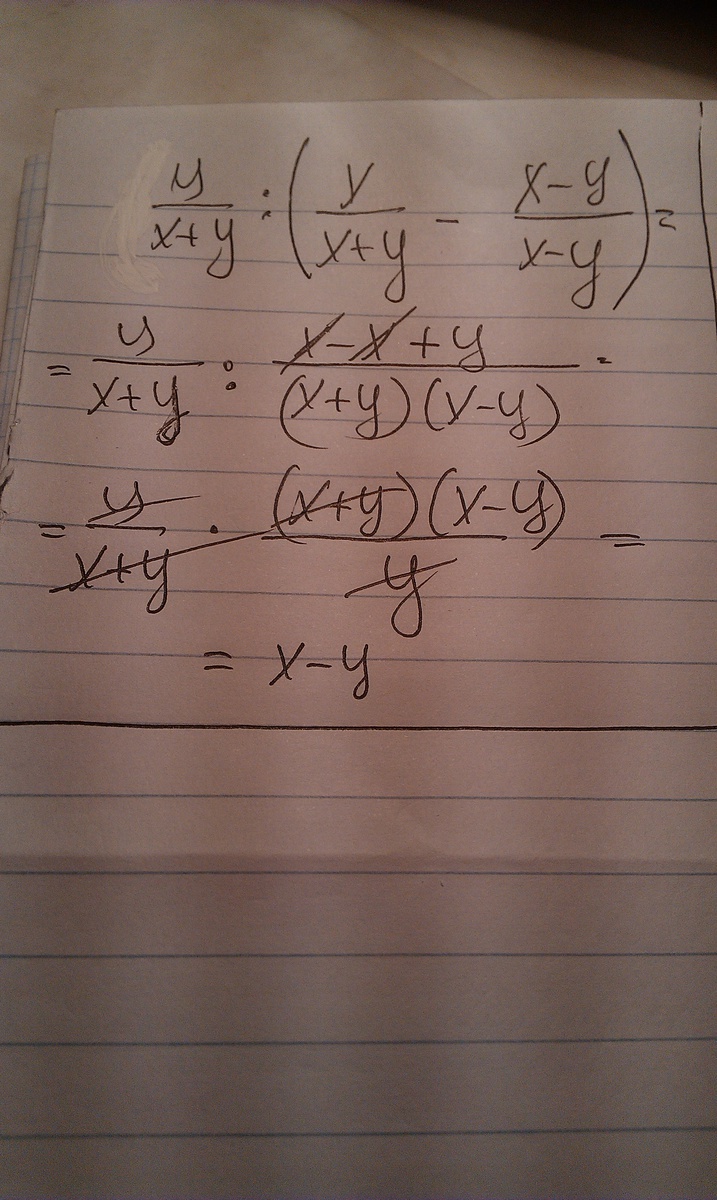 y/(x+y) : (y/(x+y) - (x-y)/(x-y)) =
= y/(x+y) : (x-x+y)/((x+y)(x-y)) =
= y/(x+y) · ((x+y)(x-y))/y =
= x-y